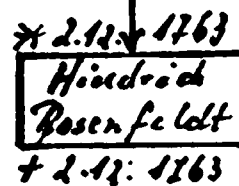 * 2.12. 1763
Hindrich
Rosenfeldt
+ 2.12: 1763